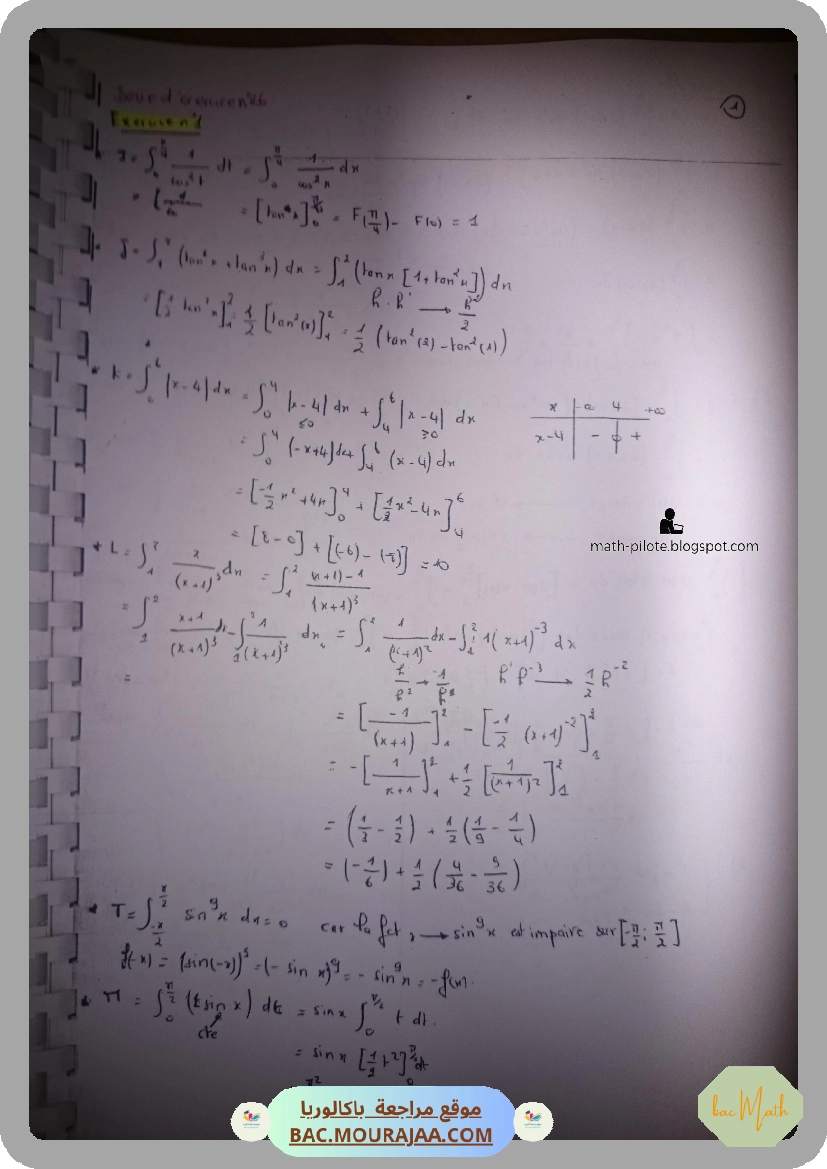 ①
Exercice n°1
I = ∫₀^{π/4} 1/cos²t dt = ∫₀^{π/4} 1/cos²x dx
= [tan x]₀^{π/4} = F(π/4) - F(0) = 1
J = ∫₁² (tan x + tan³x) dx = ∫₁² (tan x [1+tan²x]) dx
h · h' → h²/2
= [1/2 tan²x]₁² = 1/2 [tan²(x)]₁² = 1/2 (tan²(2) - tan²(1))
* K = ∫₀⁶ |x-4| dx = ∫₀⁴ |x-4| dx + ∫₄⁶ |x-4| dx
≤0 ≥0
x -∞ 4 +∞
x-4 - 0 +
= ∫₀⁴ (-x+4) dx + ∫₄⁶ (x-4) dx
= [-1/2 x² + 4x]₀⁴ + [1/2 x² - 4x]₄⁶
= [8-0] + [(-6) - (-8)] = 10
math-pilote.blogspot.com
* L = ∫₁² x/(x+1)³ dx = ∫₁² (x+1)-1/(x+1)³
= ∫₁² x+1/(x+1)³ dx - ∫₁² 1/(x+1)³ dx = ∫₁² 1/(x+1)² dx - ∫₁² 1(x+1)⁻³ dx
=
h'/h² → -1/h h' h⁻³ → 1/2 h⁻²
= [-1/(x+1)]₁² - [-1/2 (x+1)⁻²]₁²
= -[1/x+1]₁² + 1/2 [1/(x+1)²]₁²
= (1/3 - 1/2) + 1/2 (1/9 - 1/4)
= (-1/6) + 1/2 (4/36 - 9/36)
* T = ∫_{-π/2}^{π/2} sin⁹x dx = 0 car la fct x → sin⁹x est impaire sur [-π/2 ; π/2]
f(-x) = (sin(-x))⁹ = (-sin x)⁹ = -sin⁹x = -f(x).
* M = ∫₀^{π/2} (t sin x) dt = sin x ∫₀^{π/2} t dt.
cte
= sin x [1/2 t²]₀^{π/2} dt
π²
موقع مراجعة باكالوريا
BAC.MOURAJAA.COM
bac Math